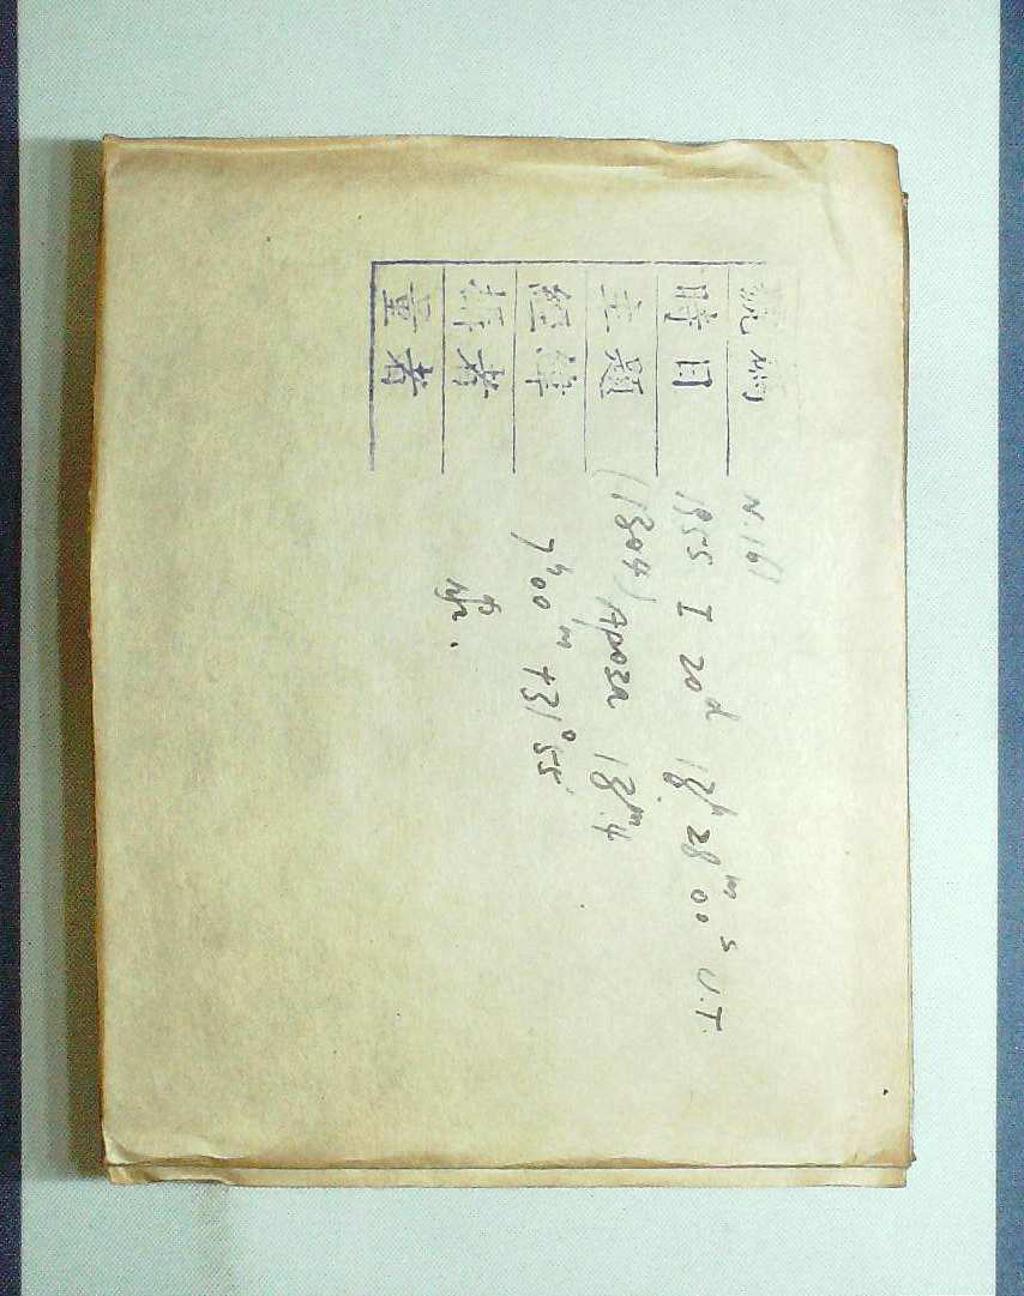 號檔 N.161
時日 1955 I 20ᵈ 18ʰ 28ᵐ 00ˢ U.T.
主題 (1304) Arosa 13ᵐ.4
經緯 7ʰ00ᵐ +31°55'
拆者
量者